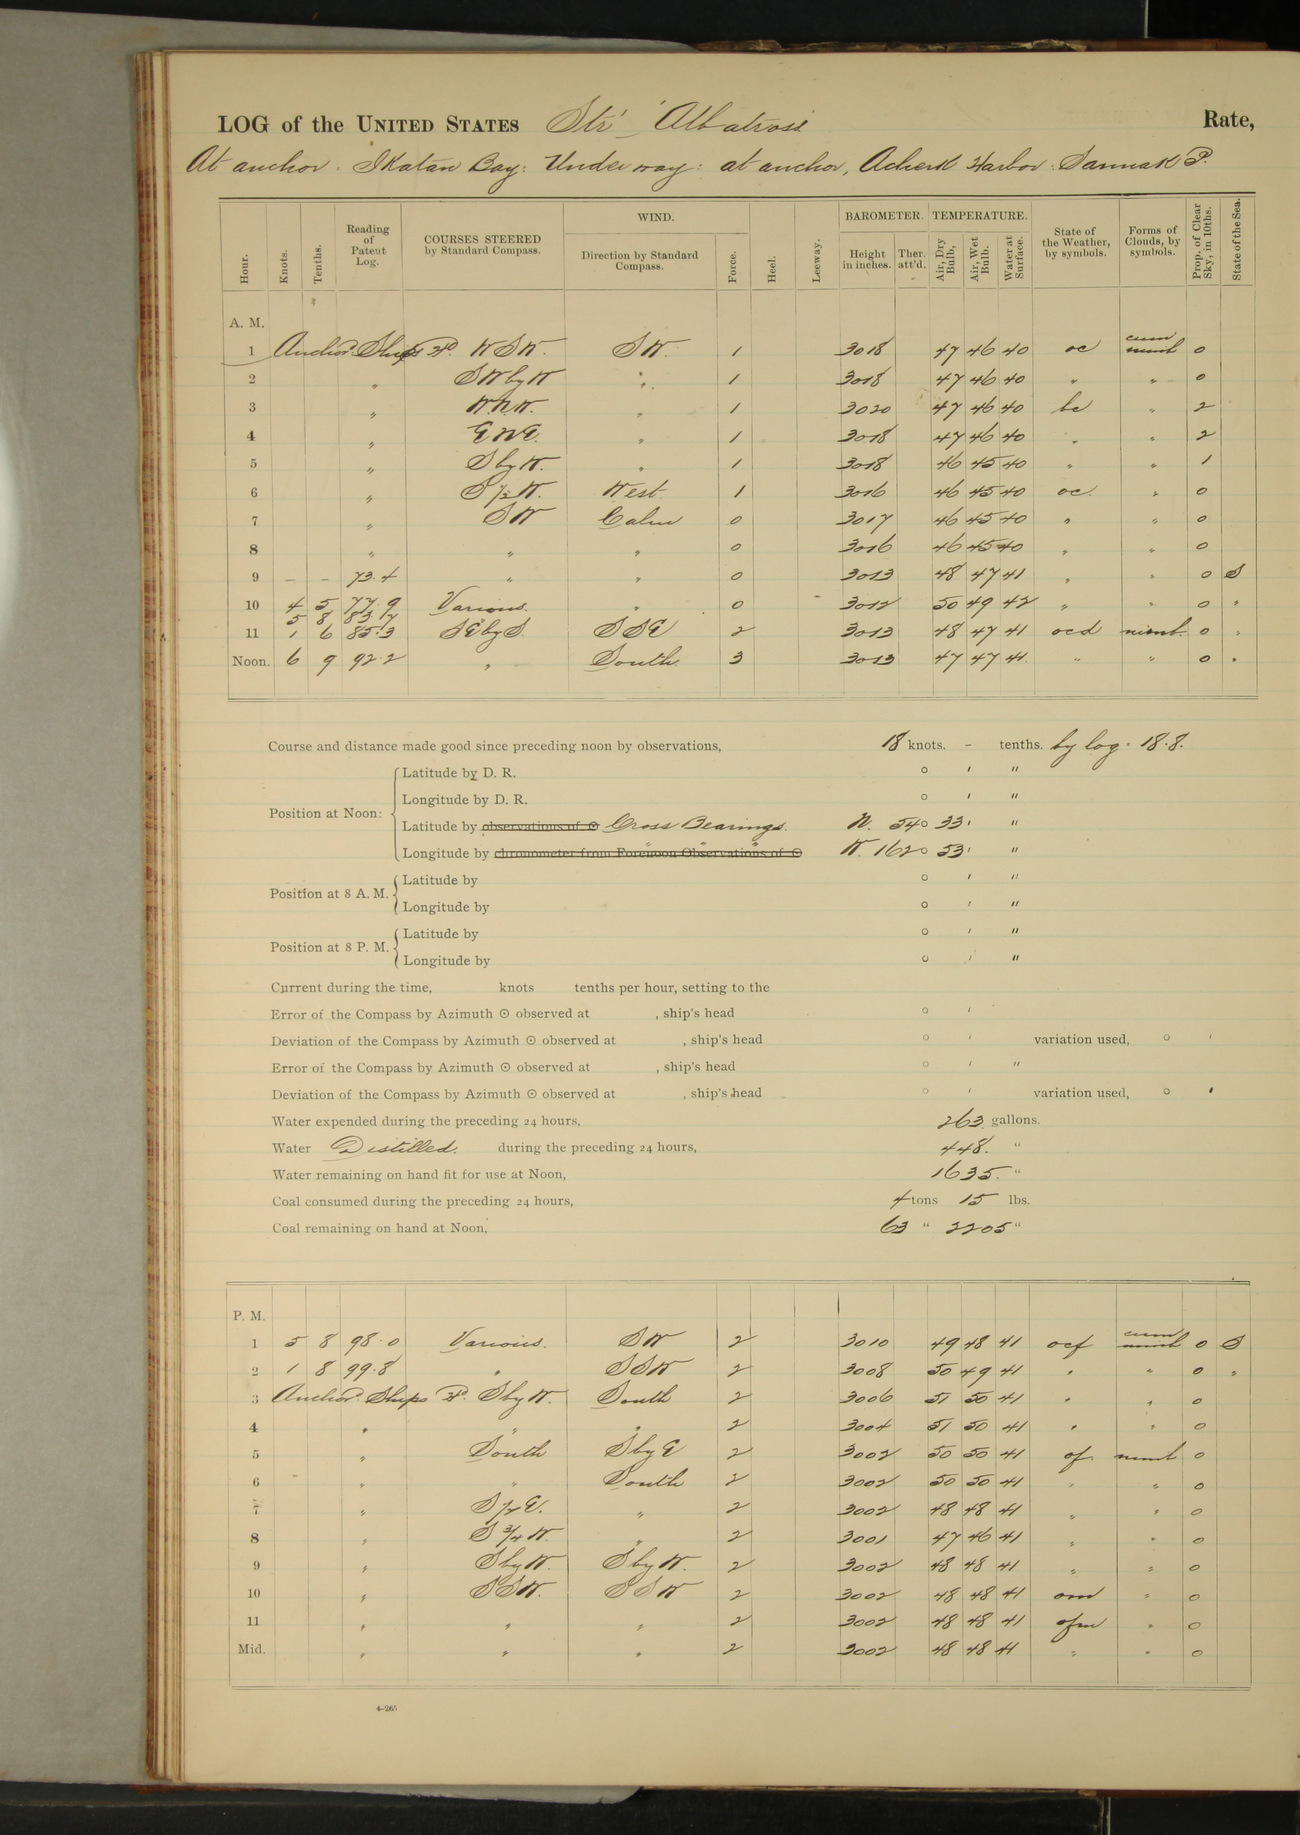 LOG of the UNITED STATES Str "Albatross" Rate,
At anchor. Ikatan Bay: Under way: at anchor, Acherk Harbor: Sannak
Hour. Knots. Tenths. Reading of Patent Log. COURSES STEERED by Standard Compass. WIND. Direction by Standard Compass. Force. Heel. Leeway. BAROMETER. Height in inches. Ther. att'd. TEMPERATURE. Air, Dry Bulb, Air, Wet Bulb. Water at Surface. State of the Weather, by symbols. Forms of Clouds, by symbols. Prop. of Clear Sky, in 10ths. State of the Sea.
A. M.
1 Anchor'd. Ships H'd. WSW. SW. 1 3018 47 46 40 oc cum nimb 0
2 " SWbyW " 1 3018 47 46 40 " " 0
3 " WNW. " 1 3020 47 46 40 bc " 2
4 " ENE. " 1 3018 47 46 40 " " 2
5 " SbyW. " 1 3018 46 45 40 " " 1
6 " S½W. West. 1 3016 46 45 40 oc. " 0
7 " SW Calm 0 3017 46 45 40 " " 0
8 " " " 0 3016 46 45 40 " " 0
9 – – 73.4 " " 0 3013 48 47 41 " " 0 S
10 4 5 77.9 Various. " 0 3012 50 49 42 " " 0 "
5 8 83.7
11 1 6 85.3 SEbyS. SSE 2 3013 48 47 41 ocd nimb. 0 "
Noon. 6 9 92.2 " South. 3 3013 47 47 41 " " 0 "
Course and distance made good since preceding noon by observations, 18 knots. – tenths. by log. 18.8.
Latitude by D. R. ° ' "
Longitude by D. R. ° ' "
Position at Noon: Latitude by observations of ☉ Cross Bearings. N. 54° 33' "
Longitude by chronometer from Forenoon Observations of ☉ " " " W. 162° 53' "
Position at 8 A. M. Latitude by ° ' "
Longitude by ° ' "
Position at 8 P. M. Latitude by ° ' "
Longitude by ° ' "
Current during the time, knots tenths per hour, setting to the
Error of the Compass by Azimuth ☉ observed at , ship's head ° '
Deviation of the Compass by Azimuth ☉ observed at , ship's head ° ' variation used, ° '
Error of the Compass by Azimuth ☉ observed at , ship's head ° ' "
Deviation of the Compass by Azimuth ☉ observed at , ship's head ° ' variation used, ° '
Water expended during the preceding 24 hours, 263. gallons.
Water Distilled. during the preceding 24 hours, 448. "
Water remaining on hand fit for use at Noon, 1635. "
Coal consumed during the preceding 24 hours, 4 tons 15 lbs.
Coal remaining on hand at Noon, 63 " 2205 "
P. M.
1 5 8 98.0 Various. SW 2 3010 49 48 41 ocf cum nimb 0 S
2 1 8 99.8 " SSW 2 3008 50 49 41 " " 0 "
3 Anchor'd. Ships H'd. SbyW. South 2 3006 51 50 41 " " 0
4 " " " 2 3004 51 50 41 " " 0
5 " South SbyE 2 3002 50 50 41 of. nimb 0
6 " " South 2 3002 50 50 41 " " 0
7 " S½E. " 2 3002 48 48 41 " " 0
8 " S¾W. " 2 3001 47 46 41 " " 0
9 " SbyW. SbyW. 2 3002 48 48 41 " " 0
10 " SSW. SSW 2 3002 48 48 41 om " 0
11 " " " 2 3002 48 48 41 ofm " 0
Mid. " " " 2 3002 48 48 41 " " 0
4–265